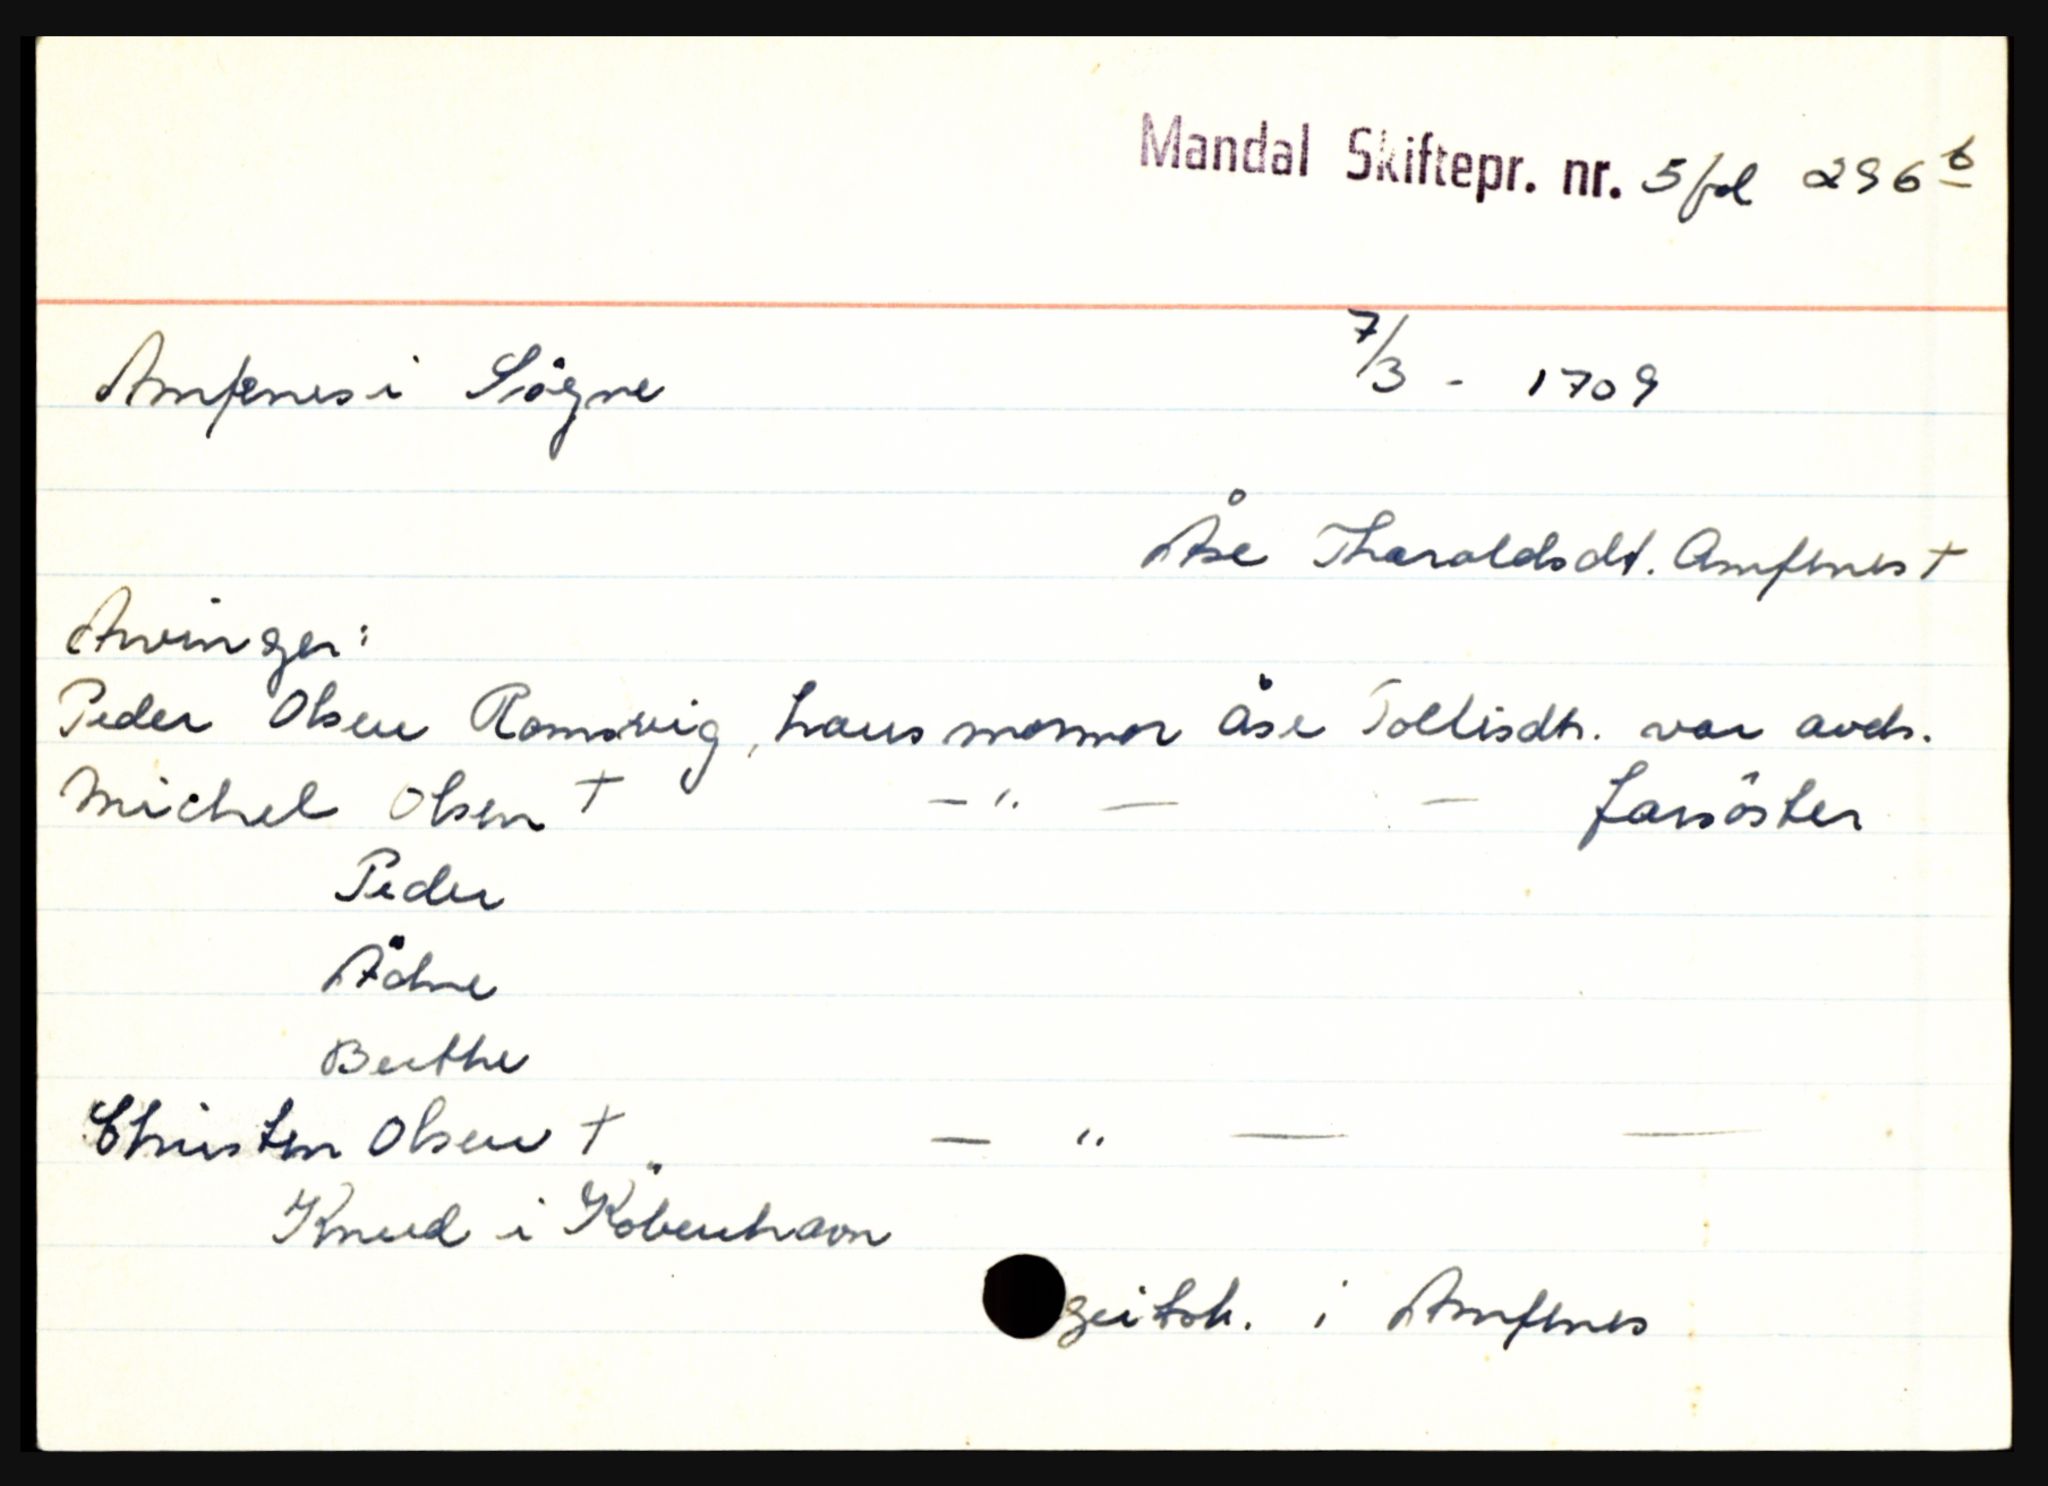 Mandal Skiftepr. nr. 5 fol 296 b
Amfenes i Sögne 7/3 - 1709
Åse Tharaldsdt. Amfenes †
Arvinger:
Peder Olsen Romsvig, hans mormor Åse Tollisdtr. var avds.
Michel Olsen † — " — — farsöster
Peder
Ådne
Berthe
Christen Olsen † — " — —
Knud i Köbenhavn
i Amfenes